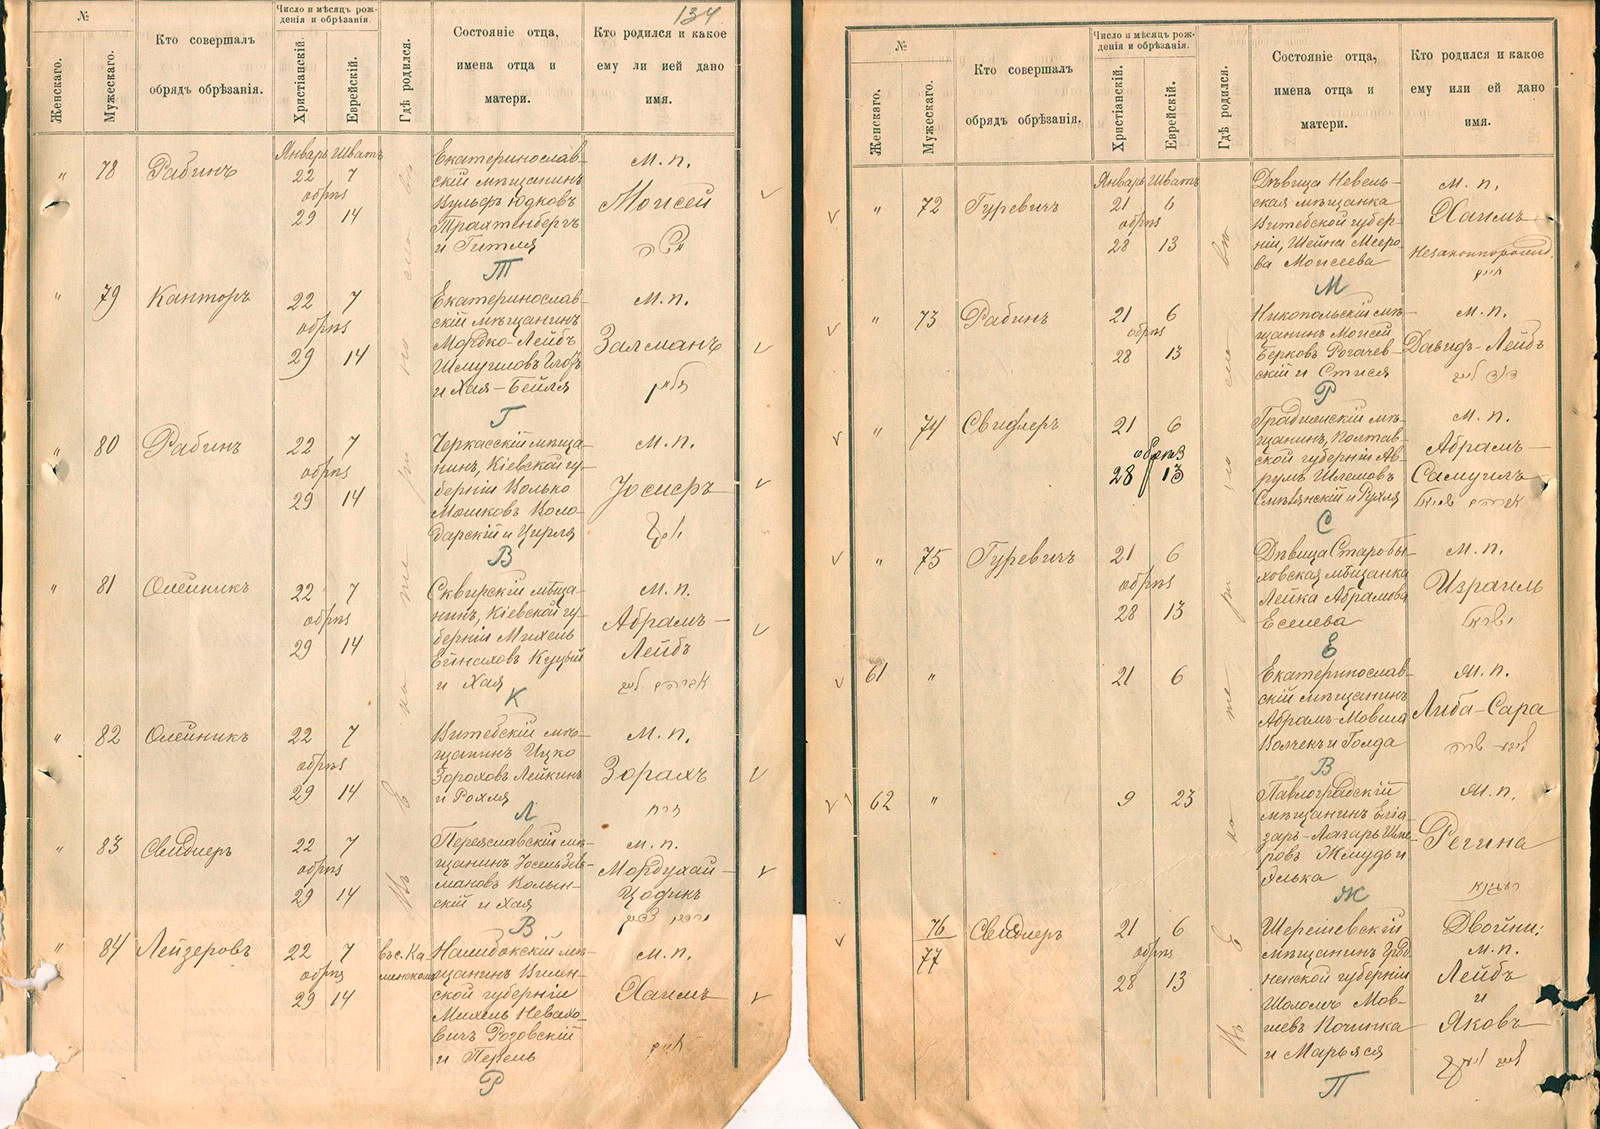 134
№
Женскаго.
Мужескаго.
Кто совершалъ
обрядъ обрѣзанія.
Число и мѣсяцъ рож-
денія и обрѣзанія.
Христіанскій.
Еврейскій.
Гдѣ родился.
Состояніе отца,
имена отца и
матери.
Кто родился и какое
ему ли ией дано
имя.
" 78 Рабинъ
Январь Шватъ
22 7
обрѣз
29 14
Екатеринослав-
скій мѣщанинъ
Вульфъ Юдковъ
Трахтенбергъ
и Гитля
Т
м. п.
Моисей
" 79 Канторъ
22 7
обрѣз
29 14
Екатеринослав-
скій мѣщанинъ
Мордко-Лейбъ
и Хая-Бейля
Г
м. п.
Залманъ
" 80 Рабинъ
22 7
обрѣз
29 14
Черкасскій мѣща-
нинъ, Кіевской гу-
берніи Волько
Мошковъ Воло-
дарскій и Цирля
В
м. п.
Іосифъ
" 81 Олейникъ
22 7
обрѣз
29 14
Сквирскій мѣща-
нинъ, Кіевской гу-
берніи Михель
Куцый
и Хая
К
м. п.
Абрамъ-
Лейбъ
" 82 Олейникъ
22 7
обрѣз
29 14
Витебскій мѣ-
щанинъ Ицко
Зороховъ Лейкинъ
и Рохля
Л
м. п.
Зорахъ
זרח
" 83 Свидлеръ
22 7
обрѣз
29 14
Переяславскій мѣ-
щанинъ Іосель Зел-
мановъ Волын-
скій и Хая
В
м. п.
Мордухай-
Цодикъ
" 84 Лейзеровъ
22 7
обрѣз
29 14
въ с. Ка
менскомъ
щанинъ Вилен-
ской губерніи
Михель Невахо-
вичъ Розовскій
и Перель
Р
м. п.
Хаимъ
חיים
№
Женскаго.
Мужескаго.
Кто совершалъ
обрядъ обрѣзанія.
Число и мѣсяцъ рож-
денія и обрѣзанія.
Христіанскій.
Еврейскій.
Гдѣ родился.
Состояніе отца,
имена отца и
матери.
Кто родился и какое
ему или ей дано
имя.
" 72 Гуревичъ
Январь Шватъ
21 6
обрѣз
28 13
Дѣвица Невель-
ская мѣщанка
Витебской губер-
ніи, Шейна Мееро-
ва Моисеева
М
м. п.
Хаимъ
Незаконнорожд.
חיים
" 73 Рабинъ
21 6
обрѣз
28 13
Никопольскій мѣ-
щанинъ Моисей
Берковъ Рогачев-
скій и Стися
Р
м. п.
Давидъ-Лейбъ
דוד לייב
" 74 Свидлеръ
21 6
обрѣз
28 13
Градижскій мѣ-
щанинъ, Полтав-
ской губерніи Ав-
румъ Шлемовъ
и Рухля
С
м. п.
Абрамъ-
Самуилъ
" 75 Гуревичъ
21 6
обрѣз
28 13
Дѣвица Старобы-
ховская мѣщанка
Лейка Абрамова
Еселева
Е
м. п.
Израиль
ישראל
61 "
21 6
Екатеринослав-
скій мѣщанинъ
Абрамъ-Мовша
Волченъ и Голда
В
м. п.
Либа-Сара
62 "
9 23
Павлоградскій
мѣщанинъ Еліа-
заръ-Лазарь Шме-
ровъ Жмудь и
Элька
Ж
м. п.
Регина
76
77
Свидлеръ
21 6
обрѣз
28 13
Шерешевскій
мѣщанинъ Грод-
ненской губерніи
Шоломъ Мов-
шевъ Починка
и Марьяся
П
Двойни:
м. п.
Лейбъ
и
Яковъ